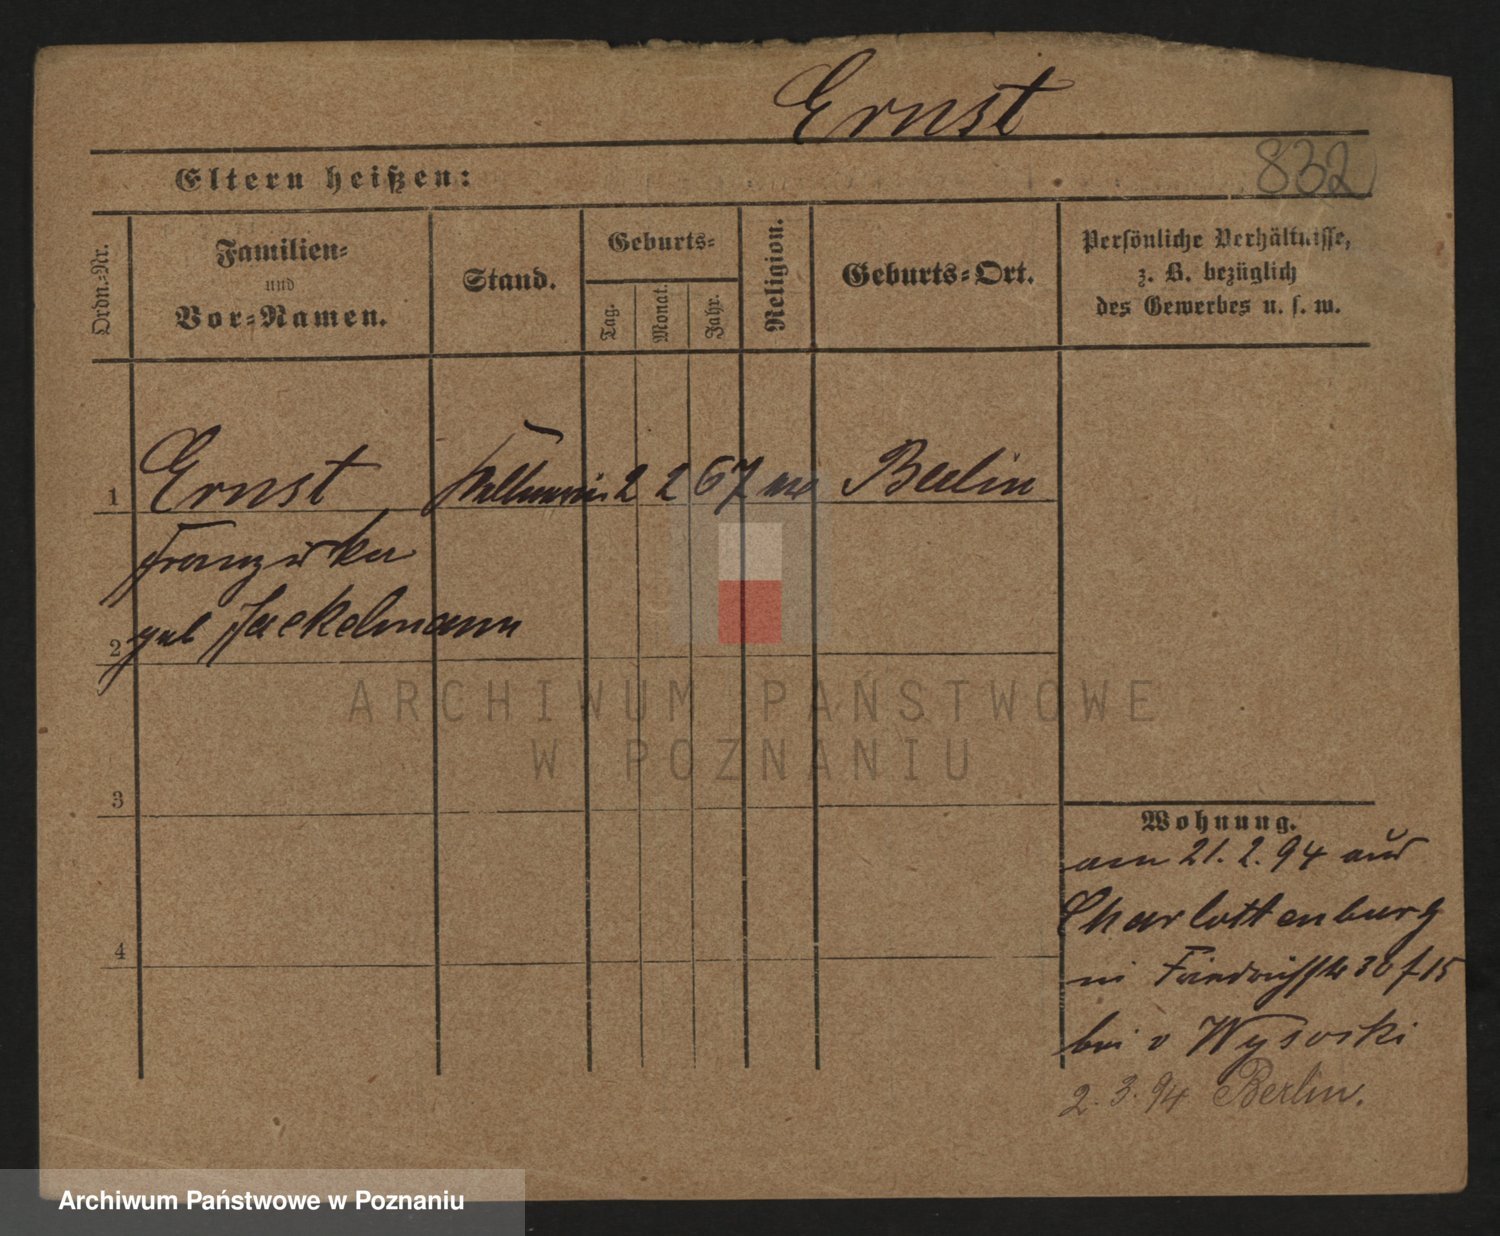 Ernst
832
Eltern heißen:
Ordn.=Nr.
Familien=
und
Vor=Namen.
Stand.
Geburts=
Tag.
Monat.
Jahr.
Religion.
Geburts=Ort.
Persönliche Verhältnisse,
z. B. bezüglich
des Gewerbes u. s. w.
1 Ernst 2 2 67 Berlin
Franziska
2 geb Jaekelmann
3
4
Wohnung.
am 21. 2. 94 aus
Charlottenburg
in Friedrichstr 30 f 15
bei v Wysoski
2. 3. 94 Berlin.
ARCHIWUM PAŃSTWOWE
W POZNANIU
Archiwum Państwowe w Poznaniu